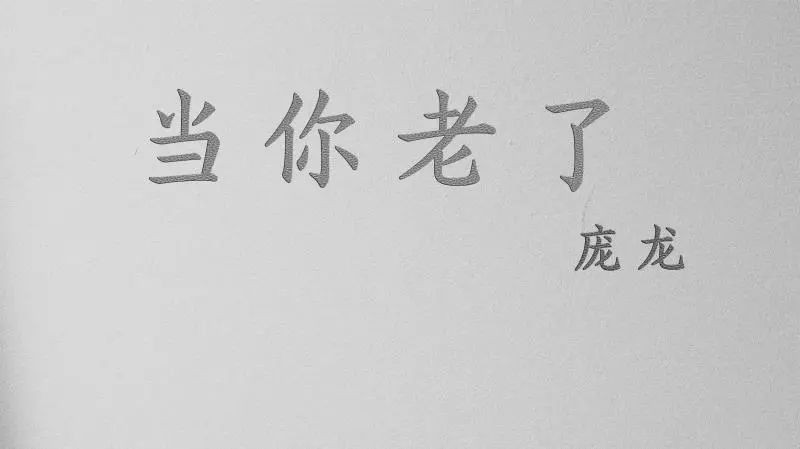 当你老了
庞龙